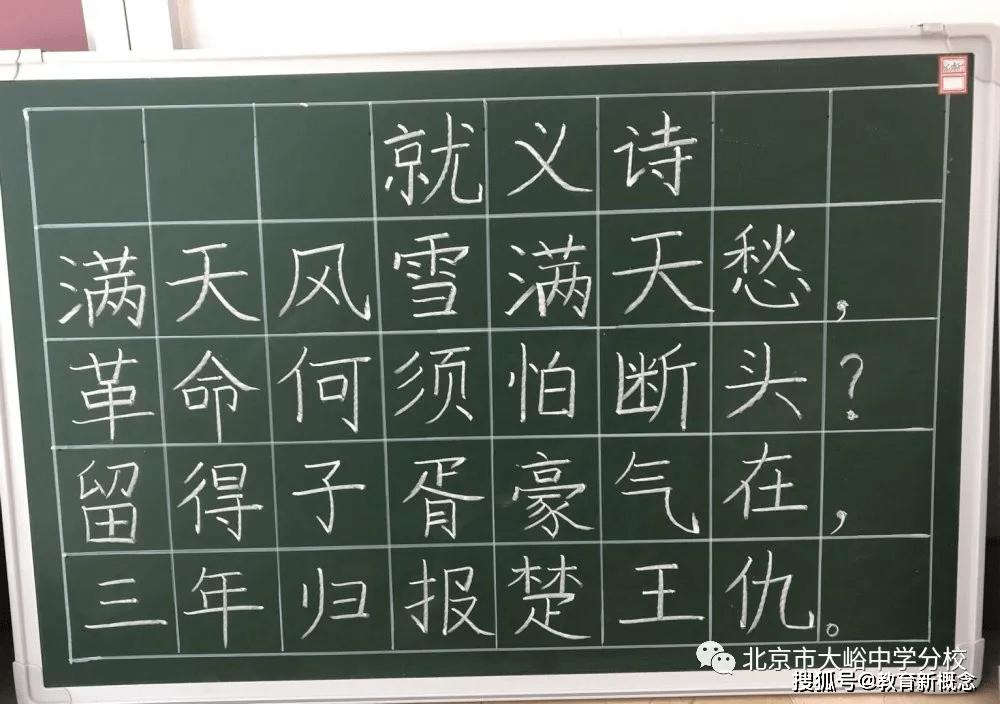 就义诗
满天风雪满天愁，
革命何须怕断头？
留得子胥豪气在，
三年归报楚王仇。
北京市大峪中学分校
搜狐号@教育新概念